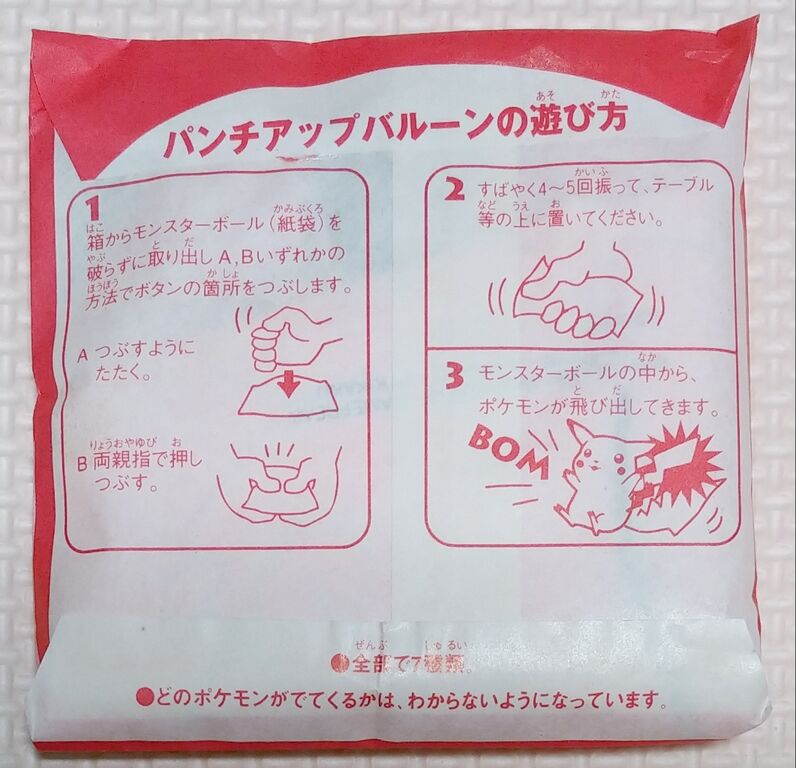 パンチアップバルーンの遊び方
1
箱からモンスターボール(紙袋)を
破らずに取り出しA,Bいずれかの
方法でボタンの箇所をつぶします。
A つぶすように
たたく。
B 両親指で押し
つぶす。
2 すばやく4〜5回振って、テーブル
等の上に置いてください。
3 モンスターボールの中から、
ポケモンが飛び出してきます。
BOM
●全部で7種類。
●どのポケモンがでてくるかは、わからないようになっています。